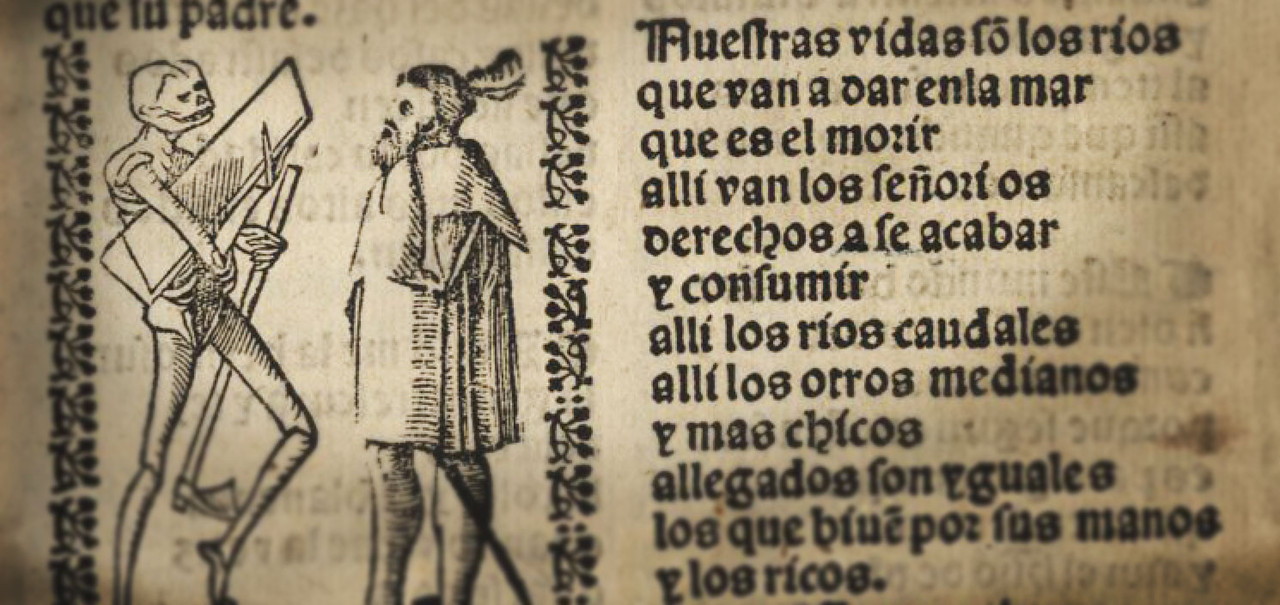 que su padre.
Nueſtras vidas ſõ los rios
que van a dar enla mar
que es el morir
alli van los ſeñori os
derechos a ſe acabar
y conſumir
alli los rios caudales
alli los otros medianos
y mas chicos
allegados ſon yguales
los que biuẽ por ſus manos
y los ricos.